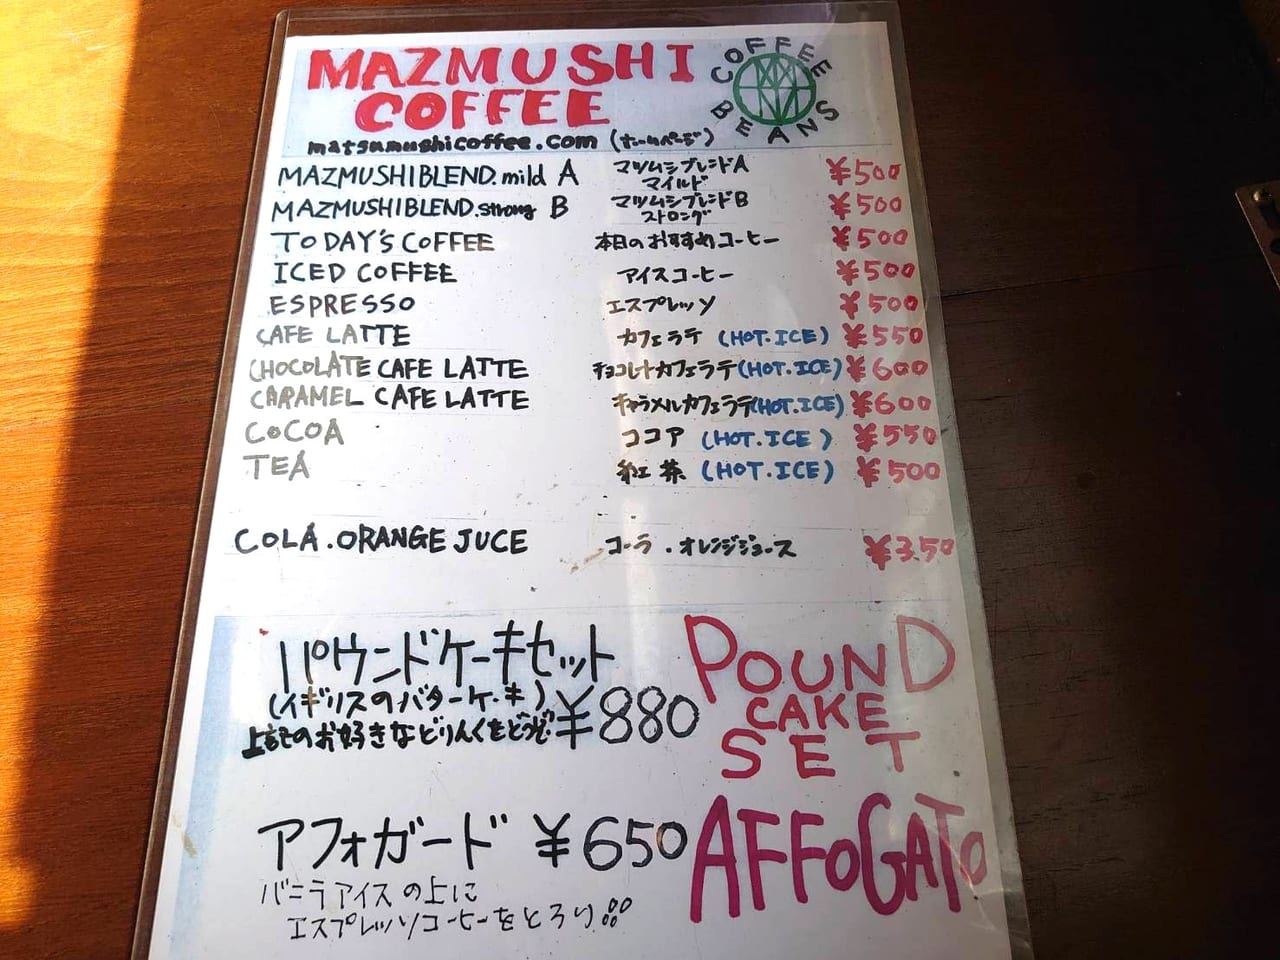 MAZMUSHI
COFFEE
COFFEE BEANS
matsumushicoffee.com (ホームページ)
MAZMUSHIBLEND.mild A マツムシブレンドA マイルド ¥500
MAZMUSHIBLEND.strong B マツムシブレンドB ストロング ¥500
TODAY'S COFFEE 本日のおすすめコーヒー ¥500
ICED COFFEE アイスコーヒー ¥500
ESPRESSO エスプレッソ ¥500
CAFE LATTE カフェラテ (HOT.ICE) ¥550
CHOCOLATE CAFE LATTE チョコレートカフェラテ(HOT.ICE) ¥600
CARAMEL CAFE LATTE キャラメルカフェラテ(HOT.ICE) ¥600
COCOA ココア (HOT.ICE) ¥550
TEA 紅茶 (HOT.ICE) ¥500
COLA.ORANGE JUCE コーラ.オレンジジュース ¥350
パウンドケーキセット
(イギリスのバターケーキ) ¥880
上記のお好きなどりんくをどうぞ
POUND
CAKE
SET
アフォガード ¥650 AFFOGATO
バニラアイスの上に
エスプレッソコーヒーをとろり